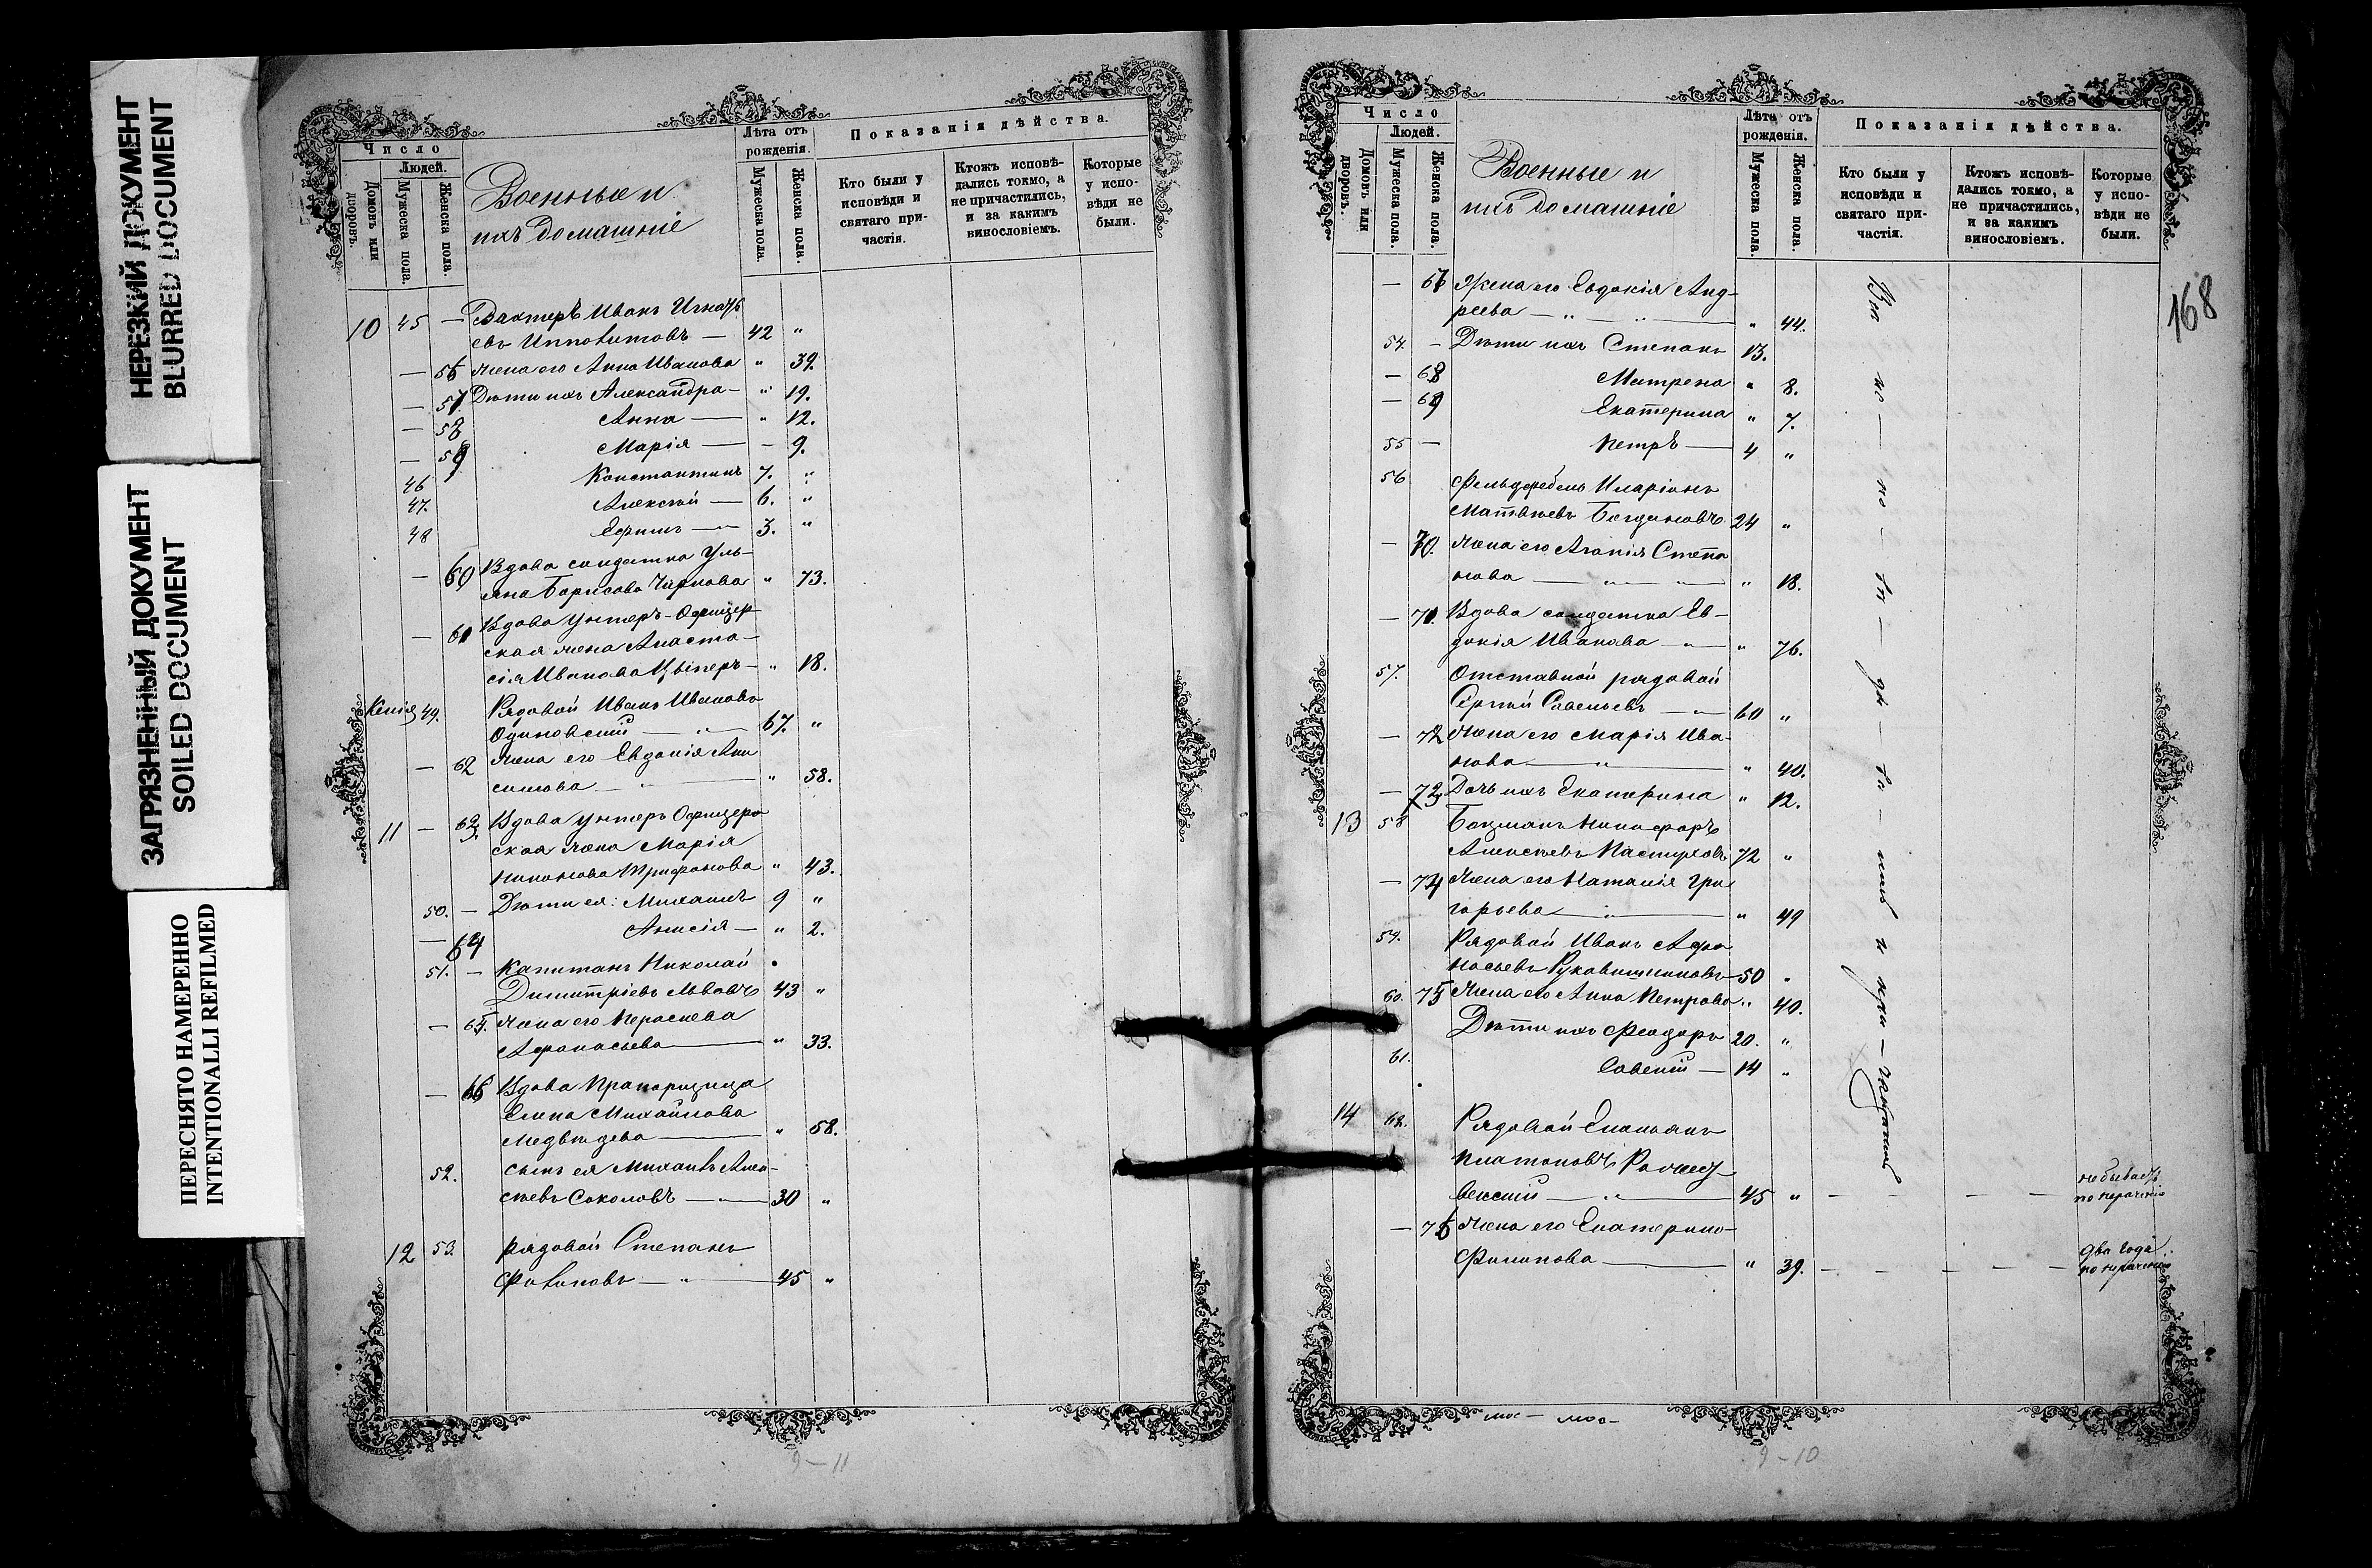 НЕРЕЗКИЙ ДОКУМЕНТ
BLURRED DOCUMENT
ЗАГРЯЗНЕННЫЙ ДОКУМЕНТ
SOILED DOCUMENT
ПЕРЕСНЯТО НАМЕРЕННО
INTENTIONALLI REFILMED
Число
Людей.
Домовъ или дворовъ.
Мужеска пола.
Женска пола.
Военные и
ихъ домашніе
Лѣта отъ рожденія.
Мужеска пола.
Женска пола.
Показанія дѣйства.
Кто были у исповѣди и святаго причастія.
Ктожъ исповѣдались токмо, а не причастились, и за какимъ винословіемъ.
Которые у исповѣди не были.
10 45 — Вахтеръ Иванъ Игнатьевъ
Ипполитовъ — 42 "
— 56 жена его Анна Иванова " 39.
— 57. Дѣти ихъ Александра — " 19.
— 58 Анна — " 12.
— 59 Марія — - 9.
46 Константинъ 7. "
47. Алексѣй — 6. "
48 Ефимъ — 3. "
— 60 Вдова солдатка Уль-
яна Борисова " 73.
— 61 Вдова Унтеръ-Офицер-
ская жена Анаста-
сія Иванова — " 18.
49. Рядовой Иванъ Ивановъ
67. "
— 62 Жена его Евдокія
" 58.
11 — 63. Вдова унтеръ Офицер
ская жена Марія
Трифонова " 43.
50. — Дѣти ея: Михаилъ 9 "
— 64 Анисія — " 2.
51. — Капитанъ Николай
Димитріевъ Львовъ 43 "
— 65. Жена его
Афанасьева — " 33.
— 66 Вдова Прапорщица
Елена Михайлова
Медвѣдева — " 58.
52. Сынъ ея Михаилъ Алек-
сѣевъ Соколовъ — 30 "
12 53. Рядовой Степанъ
Филиповъ — " — 45 "
9–11
Число
Людей.
Домовъ или дворовъ.
Мужеска пола.
Женска пола.
Военные и
ихъ домашніе
Лѣта отъ рожденія.
Мужеска пола.
Женска пола.
Показанія дѣйства.
Кто были у исповѣди и святаго причастія.
Ктожъ исповѣдались токмо, а не причастились, и за какимъ винословіемъ.
Которые у исповѣди не были.
168
— 67 Жена его Евдокія Анд-
реева — " — " 44.
54. - Дѣти ихъ Степанъ 13.
— 68 Матрена " 8.
— 69 Екатерина " 7.
55 — Петръ — 4 "
56 Фельдфебель Иларіонъ
Матвѣевъ Богдановъ 24 "
— 70. Жена его Агапія Степа
нова — " 18.
— 71. Вдова солдатка Ев-
докія Иванова — " 76.
57. Отставной рядовой
Сергѣй Савельевъ — 60 "
— 72 Жена его Марія Ива-
нова — " 40.
— 73 Дочь ихъ Екатерина " 12.
13 58 Боцманъ Никифоръ
Алексѣевъ Пастуховъ 72 "
— 74 Жена его Наталія Гри
горьева — " 49
59. Рядовой Иванъ Афа
насьевъ Рукавишниковъ 50 "
60. 75 Жена его Анна Петрова " 40.
Дѣти ихъ Феодоръ 20. "
61. Савелій — 14 "
14 62. Рядовой Емельянъ
Платоновъ
45 " — — — не бываетъ
по нераченію
— 76 Жена его Екатерина
Филипова — " 39. — — — два года
по нераченію
9–10